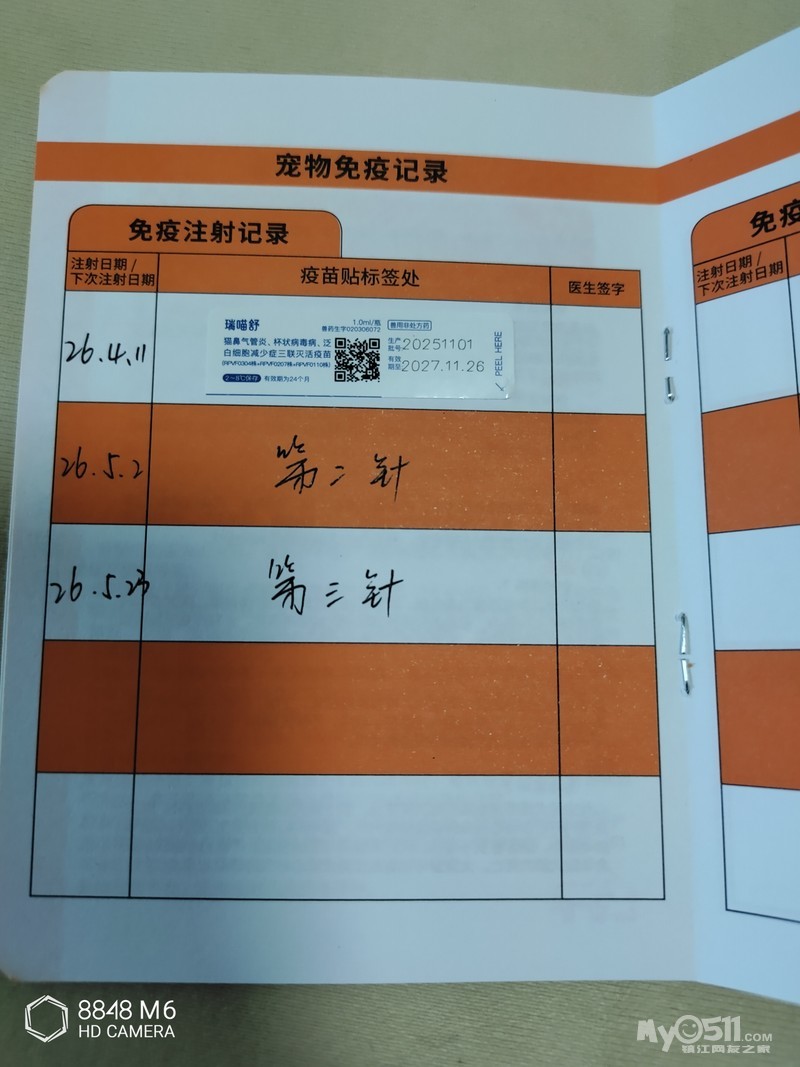 宠物免疫记录
免疫注射记录
注射日期/
下次注射日期
疫苗贴标签处
医生签字
26.4.11
瑞喵舒
1.0ml/瓶
兽药生字020306072
兽用非处方药
猫鼻气管炎、杯状病毒病、泛
白细胞减少症三联灭活疫苗
(RPVF0304株+RPVF0207株+RPVF0110株)
2~8℃保存 有效期为24个月
生产
批号:
20251101
有效
期至:
2027.11.26
PEEL HERE
26.5.2
第二针
26.5.23
第三针
免疫
注射日期/
下次注射日期
8848 M6
HD CAMERA
My0511.COM
镇江网友之家